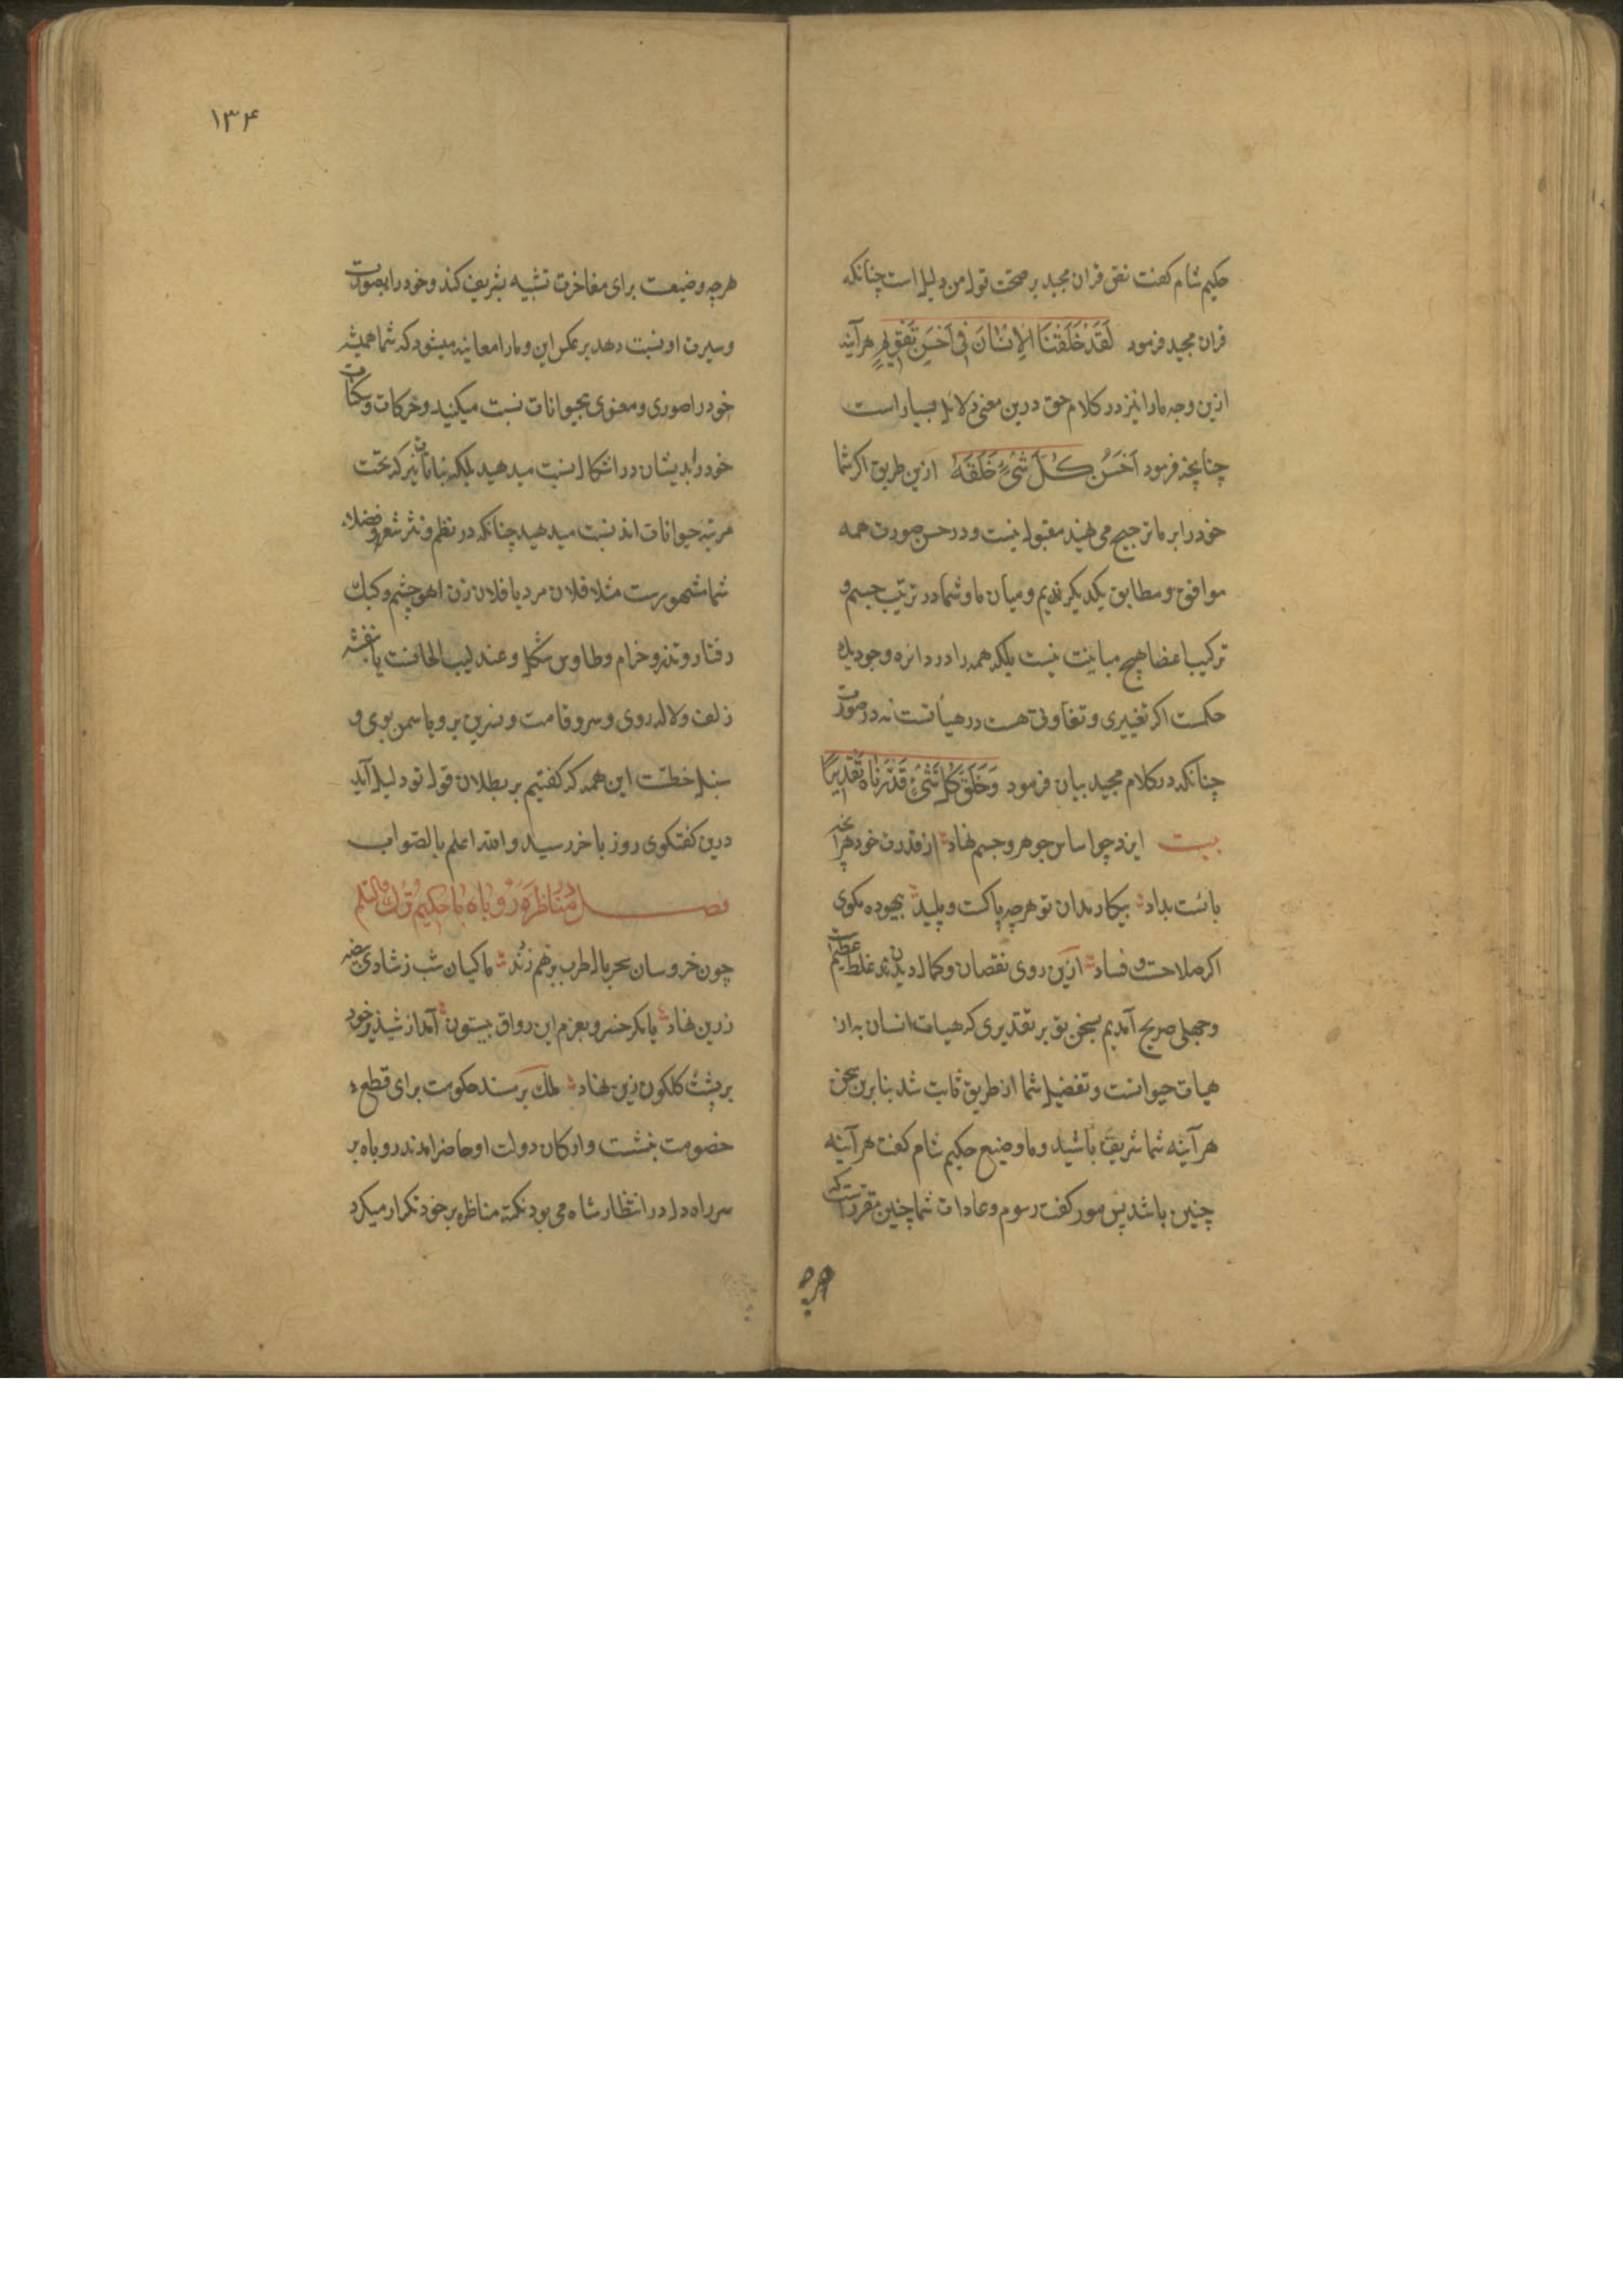 حکیم شام کفت نص قران مجید بر صحت قول من دلیل است چنانکه
قران مجید فرمود لَقَدْ خَلَقْنَا الاِنْسَانَ فِی اَحْسَنِ تَقْوِیمٍ هرآینه
ازین وجه مارا نیز در کلام حق درین معنی دلایل بسیار است
چنانچه فرمود اَحْسَنُ كُلَّ شَیْءٍ خَلَقَهُ ازین طریق اکر شما
خود را بر ما ترجیح می نهید مقبول نیست و در حسن صورت همه
موافق و مطابق یکدیکر ندیم و میان ما و شما در ترتیب جسم و
ترکیب اعضا هیچ مباینت نیست بلکه همه را در دائره وجود ید
حکمست اکر تغییری و تفاوتی هست در هیأتست نه در صورت
چنانکه در کلام مجید بیان فرمود وَخَلَقَ كُلَّ شَیْءٍ قَدَّرْنَاهُ تَقْدِیرًا
بیت ایزد چو اساس جوهر و جسم نهاد از قدرت خود هرآنچه
بائست بداد بیکار مدان تو هرچه پاکست و پلید بیهوده مکوی
اکر صلاحت و فساد ازین روی نقصان و کمال دیدن غلط عظیم است
و جهلی صریح آمدیم بسخن تو بر تقدیری که هیات انسان به از
هیات حیوانست و تفضیل شما از طریق ثابت شد بنا برین سخن
هرآینه شما شریف باشید و ما وضیع حکیم شام کفت هرآینه
چنین باشد پس مور کفت رسوم و عادات شما چنین مقررست که
هرچه
۱۳۴
هرچه وضیعست برای مفاخرت تشبیه بشریف کند و خود را بصورت
و سیرت او نسبت دهد بر عکس این و مارا معاینه میشود که شما همیشه
خود را صوری و معنوی بحیوانات نسبت میکنید و حرکات و سکنات
خود را بدیشان در اشکال نسبت میدهید بلکه بنباتات نیز که تحت
مرتبه حیوانات اند نسبت میدهید چنانکه در نظم و نثر شعر و فضلاء
شما مشهورست مثلا فلان مرد یا فلان زن اهو چشم و کبک
رفتار و تذرو خرام و طاوس شکل و عندلیب الحانست یا بنفشه
زلف و لاله روی و سرو قامت و نسرین بر و یا سمن بوی و
سنبل خطست این همه که کفتیم بر بطلان قول تو دلیل آید
درین کفتکوی روز باخر رسید والله اعلم بالصواب
فصل مُنَاظَرَه رُوبَاه بَا حَکِیم تُرْك
چون خروسان سحر بال طرب بر هم زند ماکیان شب ز شادی بیضه
زرین نهاد یا مکر خسرو بعزم این رواق بیستون آمد از شبدیز خود
بر پشت کلکون زین نهاد ملك بر مسند حکومت برای قطع
خصومت بنشست و ارکان دولت او حاضر امدند روباه بر
سر راه دل در انتظار شاه می بود نکته مناظره بر خود تکرار میکرد